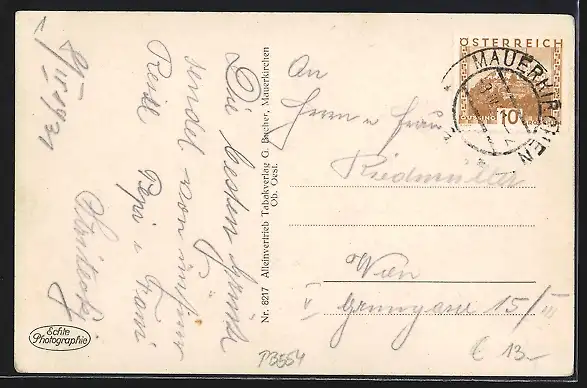 Die besten Grüße
sendet von unserer
Reise Pepi u Franzi
1931
Echte
Photographie
Nr. 8217 Alleinvertrieb Tabakverlag G. Bucher, Mauerkirchen
Ob. Oest.
An
Herrn u Frau
Riedmüller
Wien
V Grüngasse 15/
ÖSTERREICH
10
GROSCHEN
MAUERKIRCHEN
P3554
€ 13.-